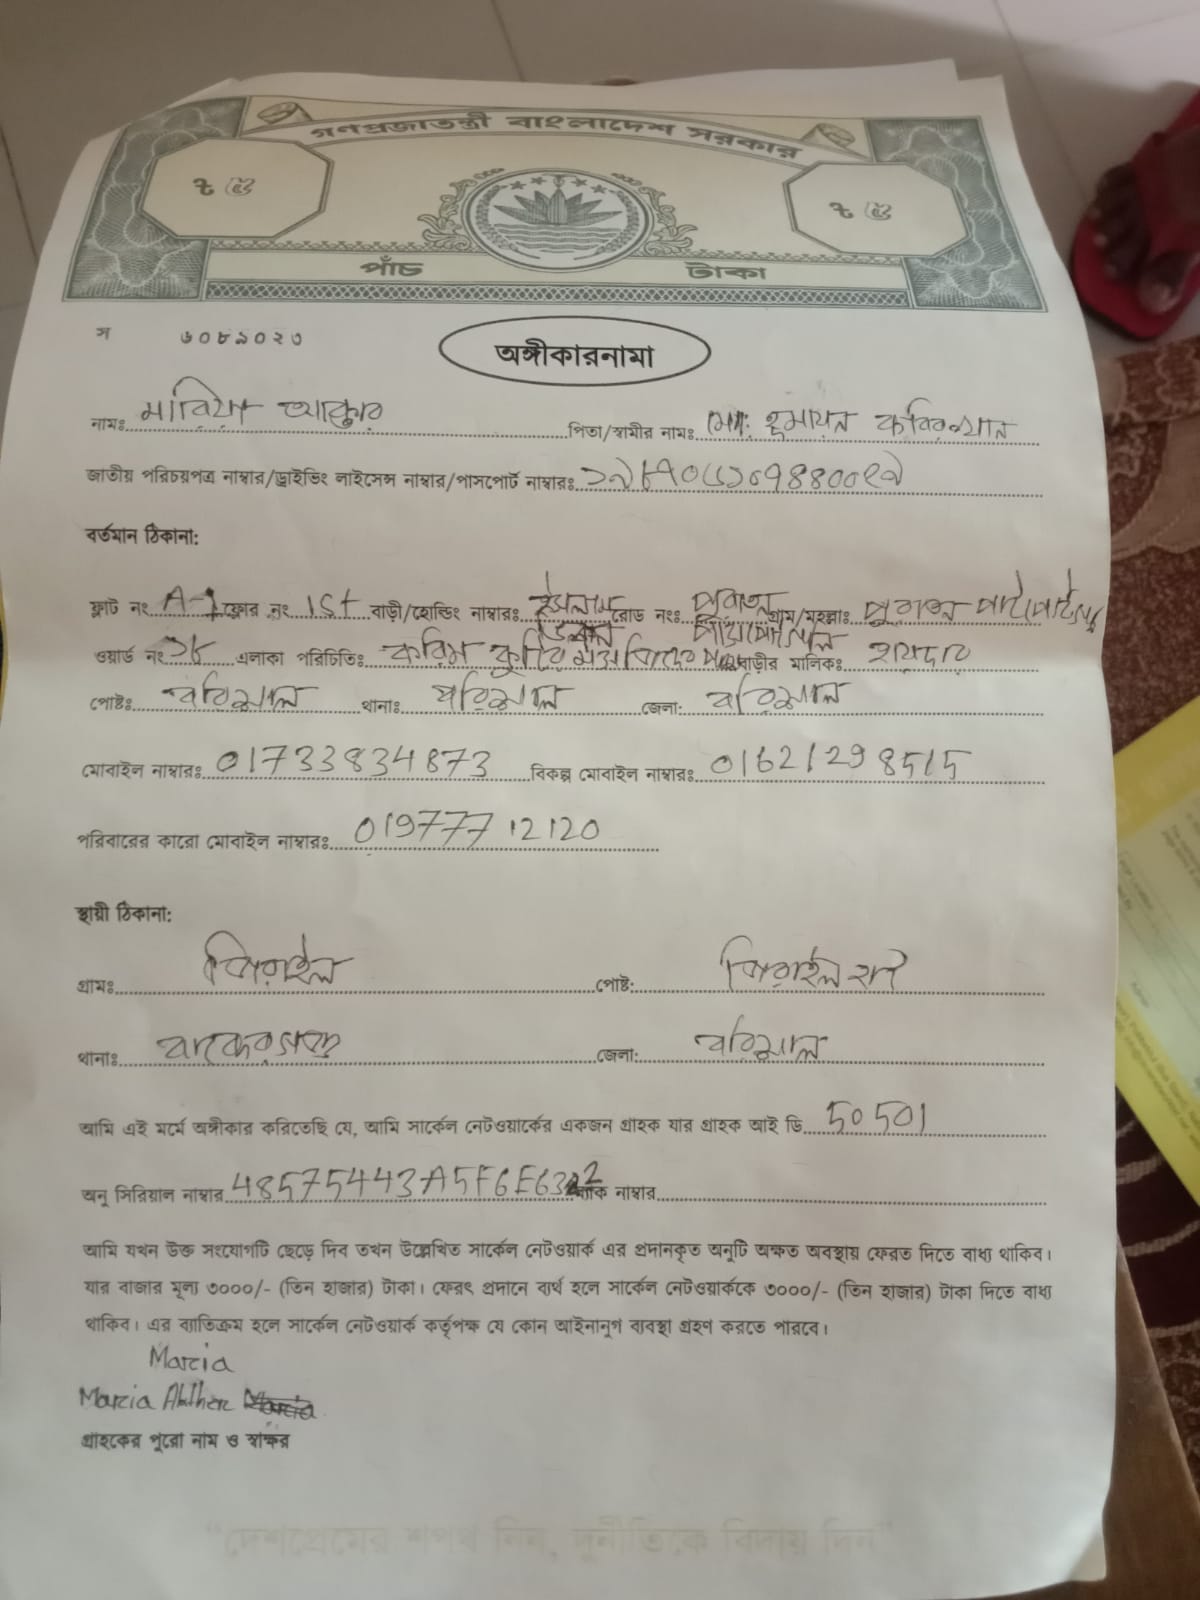 গণপ্রজাতন্ত্রী বাংলাদেশ সরকার
ট ৫ ট ৫
পাঁচ টাকা
স ৬০৮৯০২৩
অঙ্গীকারনামা
নামঃ মারিয়া আক্তার পিতা/স্বামীর নামঃ মোঃ হুমায়ন কবির খান
জাতীয় পরিচয়পত্র নাম্বার/ড্রাইভিং লাইসেন্স নাম্বার/পাসপোর্ট নাম্বারঃ
বর্তমান ঠিকানা:
ফ্লাট নং A-1 ফ্লোর নং 1st বাড়ী/হোল্ডিং নাম্বারঃ ইসলাম রোড নংঃ পুরাতন গ্রাম/মহল্লাঃ পুরাতন
ওয়ার্ড নং ১৮ এলাকা পরিচিতিঃ করিম কুটির মসজিদের বাড়ীর মালিকঃ হায়দার
পোষ্টঃ বরিশাল থানাঃ বরিশাল জেলা: বরিশাল
মোবাইল নাম্বারঃ 01733834873 বিকল্প মোবাইল নাম্বারঃ 01621298515
পরিবারের কারো মোবাইল নাম্বারঃ 01977712120
স্থায়ী ঠিকানা:
গ্রামঃ পোষ্ট:
থানাঃ বাকেরগঞ্জ জেলা: বরিশাল
আমি এই মর্মে অঙ্গীকার করিতেছি যে, আমি সার্কেল নেটওয়ার্কের একজন গ্রাহক যার গ্রাহক আই ডি 50501
অনু সিরিয়াল নাম্বার 48575443A5F6E63 নাম্বার
আমি যখন উক্ত সংযোগটি ছেড়ে দিব তখন উল্লেখিত সার্কেল নেটওয়ার্ক এর প্রদানকৃত অনুটি অক্ষত অবস্থায় ফেরত দিতে বাধ্য থাকিব।
যার বাজার মূল্য ৩০০০/- (তিন হাজার) টাকা। ফেরৎ প্রদানে ব্যর্থ হলে সার্কেল নেটওয়ার্ককে ৩০০০/- (তিন হাজার) টাকা দিতে বাধ্য
থাকিব। এর ব্যাতিক্রম হলে সার্কেল নেটওয়ার্ক কর্তৃপক্ষ যে কোন আইনানুগ ব্যবস্থা গ্রহণ করতে পারবে।
Maria
Maria Akther
গ্রাহকের পুরো নাম ও স্বাক্ষর
“দেশপ্রেমের শপথ নিন, দুর্নীতিকে বিদায় দিন”